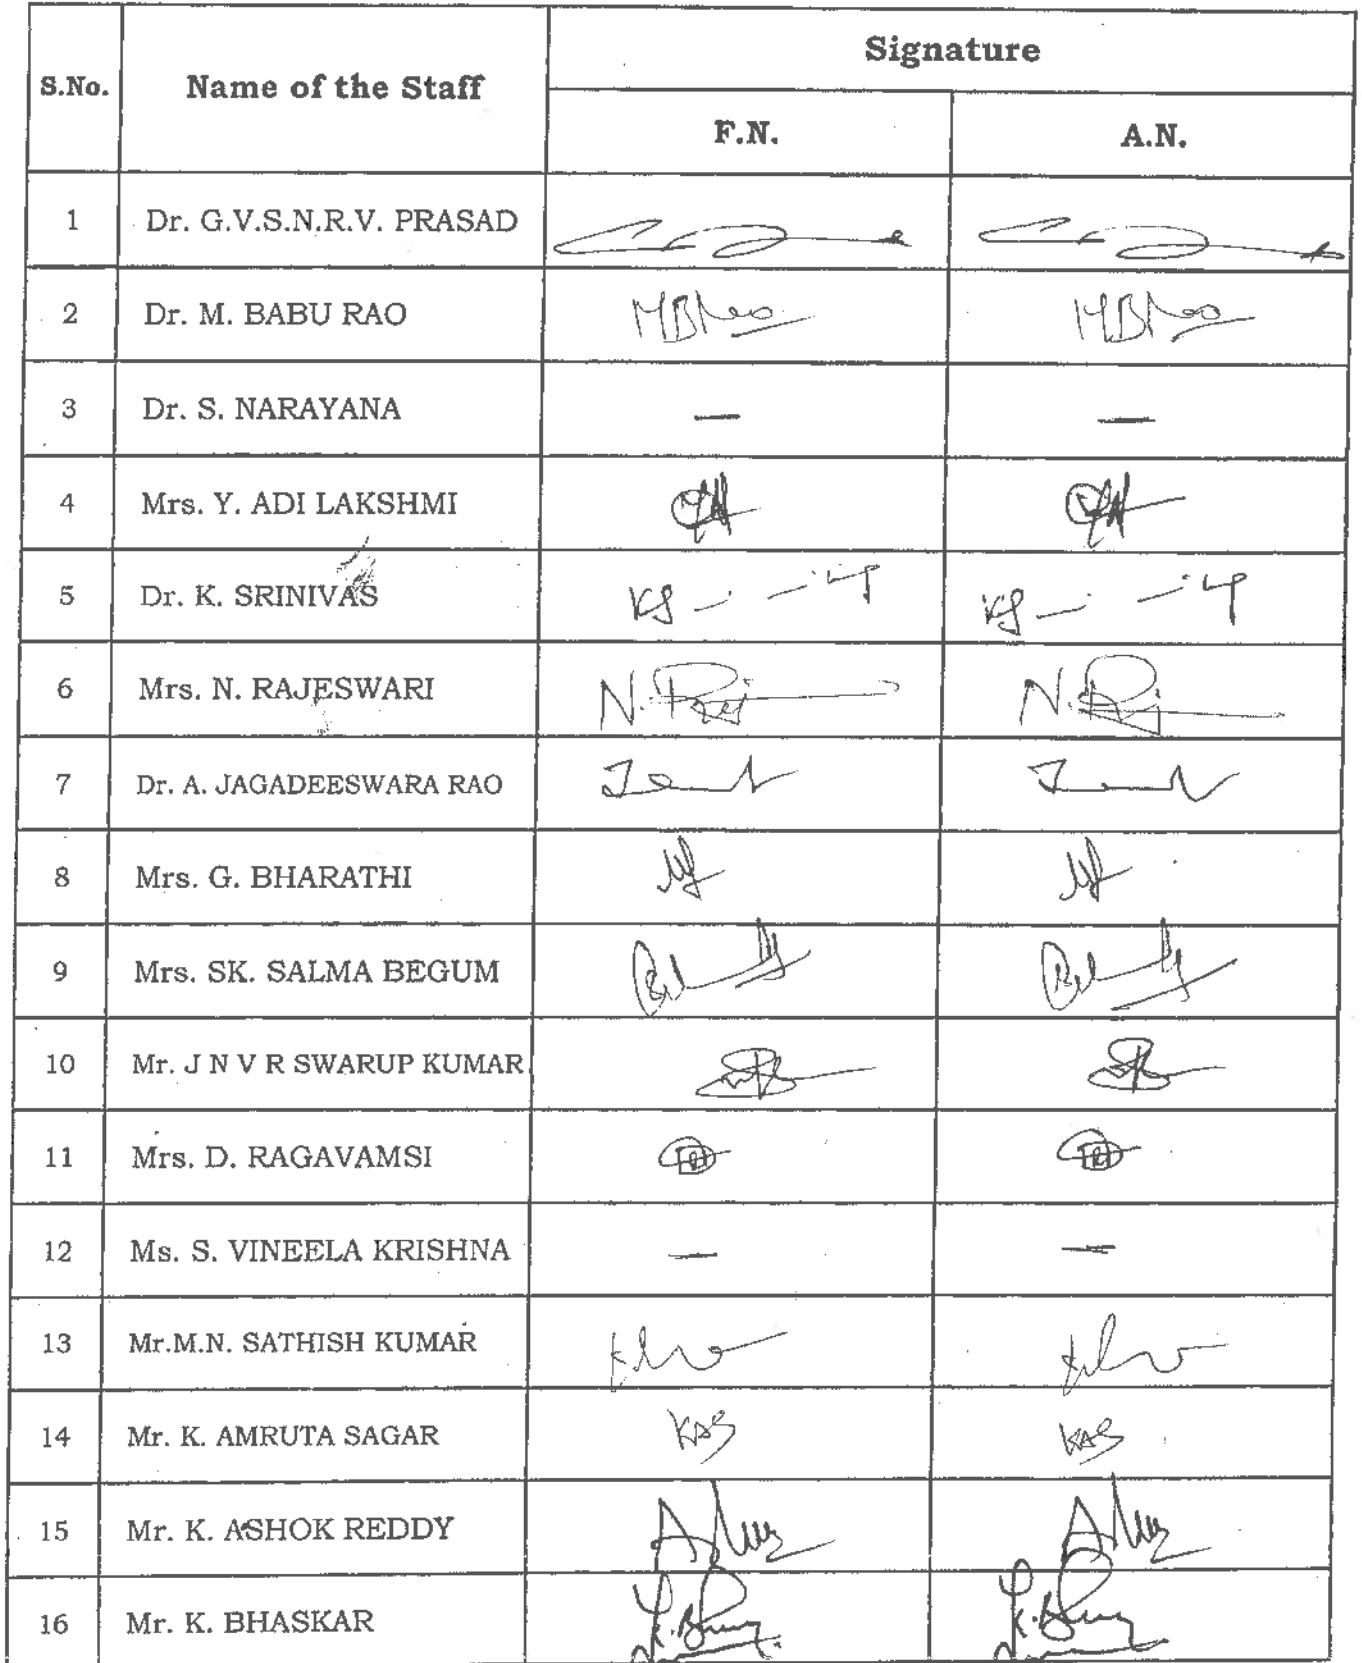 S.No. Name of the Staff Signature
F.N. A.N.
1 Dr. G.V.S.N.R.V. PRASAD
2 Dr. M. BABU RAO MBRao MBRao
3 Dr. S. NARAYANA — —
4 Mrs. Y. ADI LAKSHMI
5 Dr. K. SRINIVAS
6 Mrs. N. RAJESWARI N. Raj N. Raj
7 Dr. A. JAGADEESWARA RAO
8 Mrs. G. BHARATHI
9 Mrs. SK. SALMA BEGUM
10 Mr. J N V R SWARUP KUMAR
11 Mrs. D. RAGAVAMSI
12 Ms. S. VINEELA KRISHNA — —
13 Mr.M.N. SATHISH KUMAR
14 Mr. K. AMRUTA SAGAR KAS KAS
15 Mr. K. ASHOK REDDY
16 Mr. K. BHASKAR